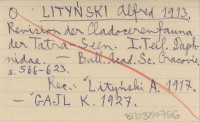 O LITYŃSKI Alfred 1913.
Revision der Cladocerenfauna
der Tatra-Seen. I. Teil. Daph-
nidae. — Bull. Acad. Sc. Cracovie,
s. 566-623.
Rec.: Lityński A. 1917.
— GAJL K. 1927.